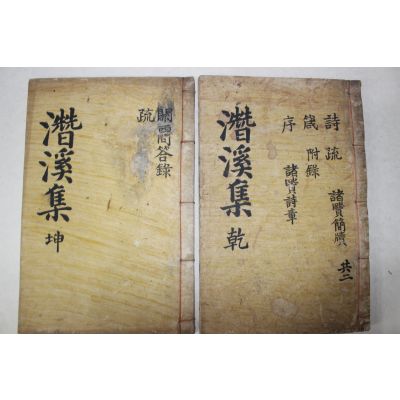 詩 疏 諸賢簡牘 共二
箴 附錄
序 諸賢詩章
潛溪集 乾
問答錄
疏
潛溪集 坤